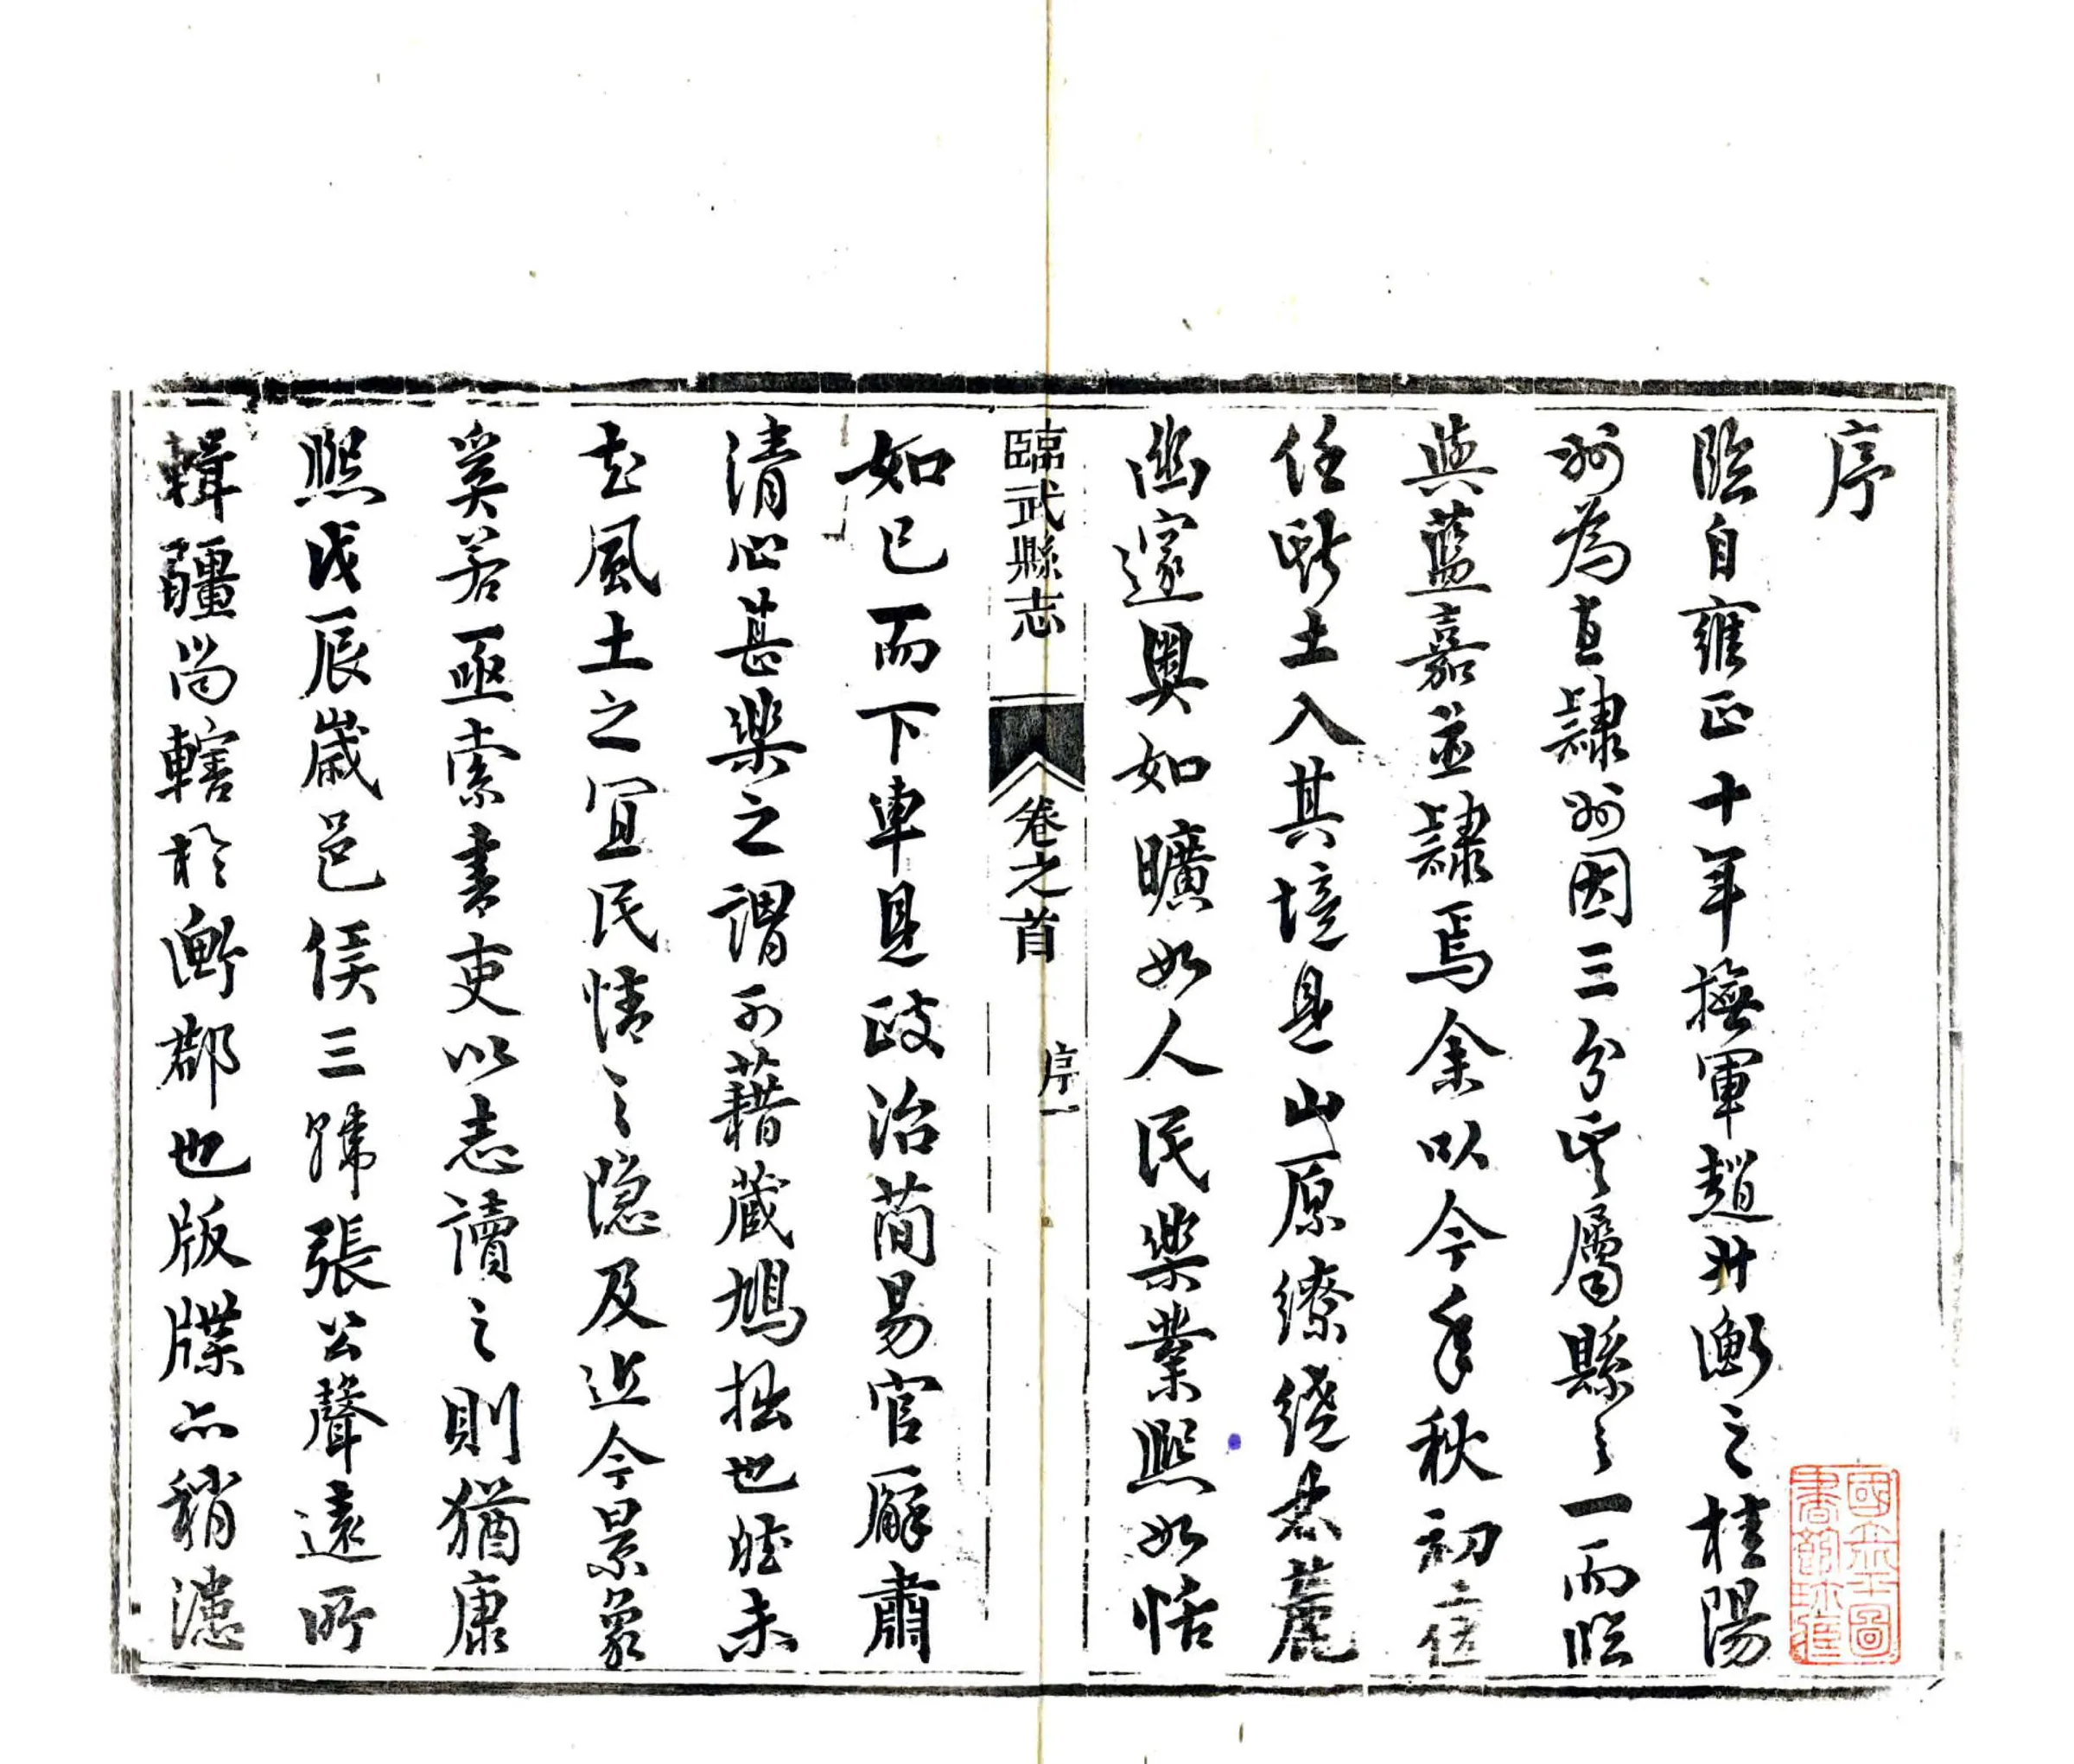 序
臨自雍正十年撫軍趙升衡之桂陽
州為直隸州因三分其屬縣之一而臨
與藍嘉並隸焉余以今年秋初
任斯土入其境見山原繚繞林麓
幽邃奥如曠如人民樂業熙如恬
臨武縣志
卷之首
序一
如已而下車見政治簡易官廨肅
清心甚樂之謂可藉藏鳩拙也雖未
知風土之宜民情之隱及近今景象
奚若亟索書吏以志讀之則猶康
熙戊辰歲邑侯三韓張公聲遠所
輯疆尚轄於衡郡也版牒亦稍漶
國立北平圖
書館珍藏